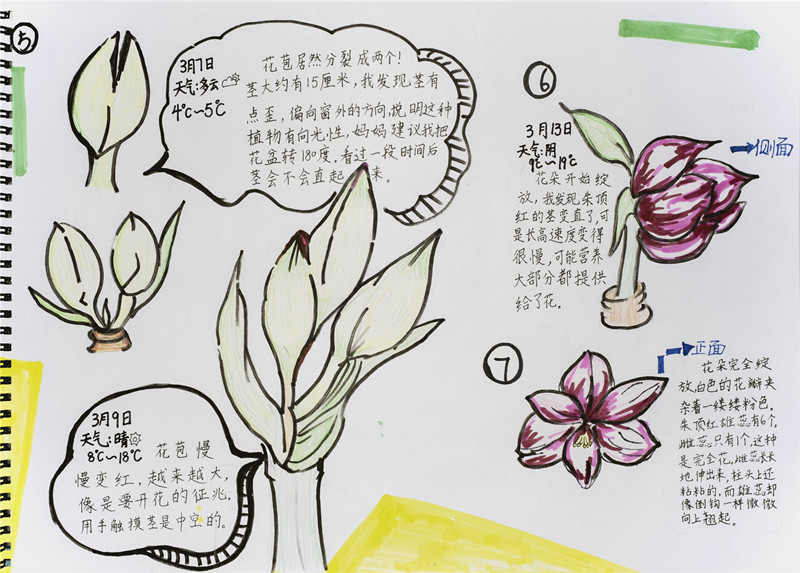 5
3月7日
天气:多云
4℃~5℃
花苞居然分裂成两个!
茎大约有15厘米,我发现茎有
点歪,偏向窗外的方向,说明这种
植物有向光性,妈妈建议我把
花盆转180度,看过一段时间后
茎会不会直起来。
3月9日
天气:晴
8℃~18℃
花苞慢
慢变红,越来越大,
像是要开花的征兆.
用手触摸茎是中空的。
6
3月13日
天气:阴
9℃~19℃
花朵开始绽
放,我发现朱顶
红的茎变直了,可
是长高速度变得
很慢,可能营养
大部分都提供
给了花。
侧面
7
正面
花朵完全绽
放,白色的花瓣夹
杂着一缕缕粉色。
朱顶红雄蕊有6个,
雌蕊只有1个,这种
是完全花,雌蕊长长
地伸出来,柱头上还
粘粘的,而雄蕊却
像倒钩一样微微
向上翘起。